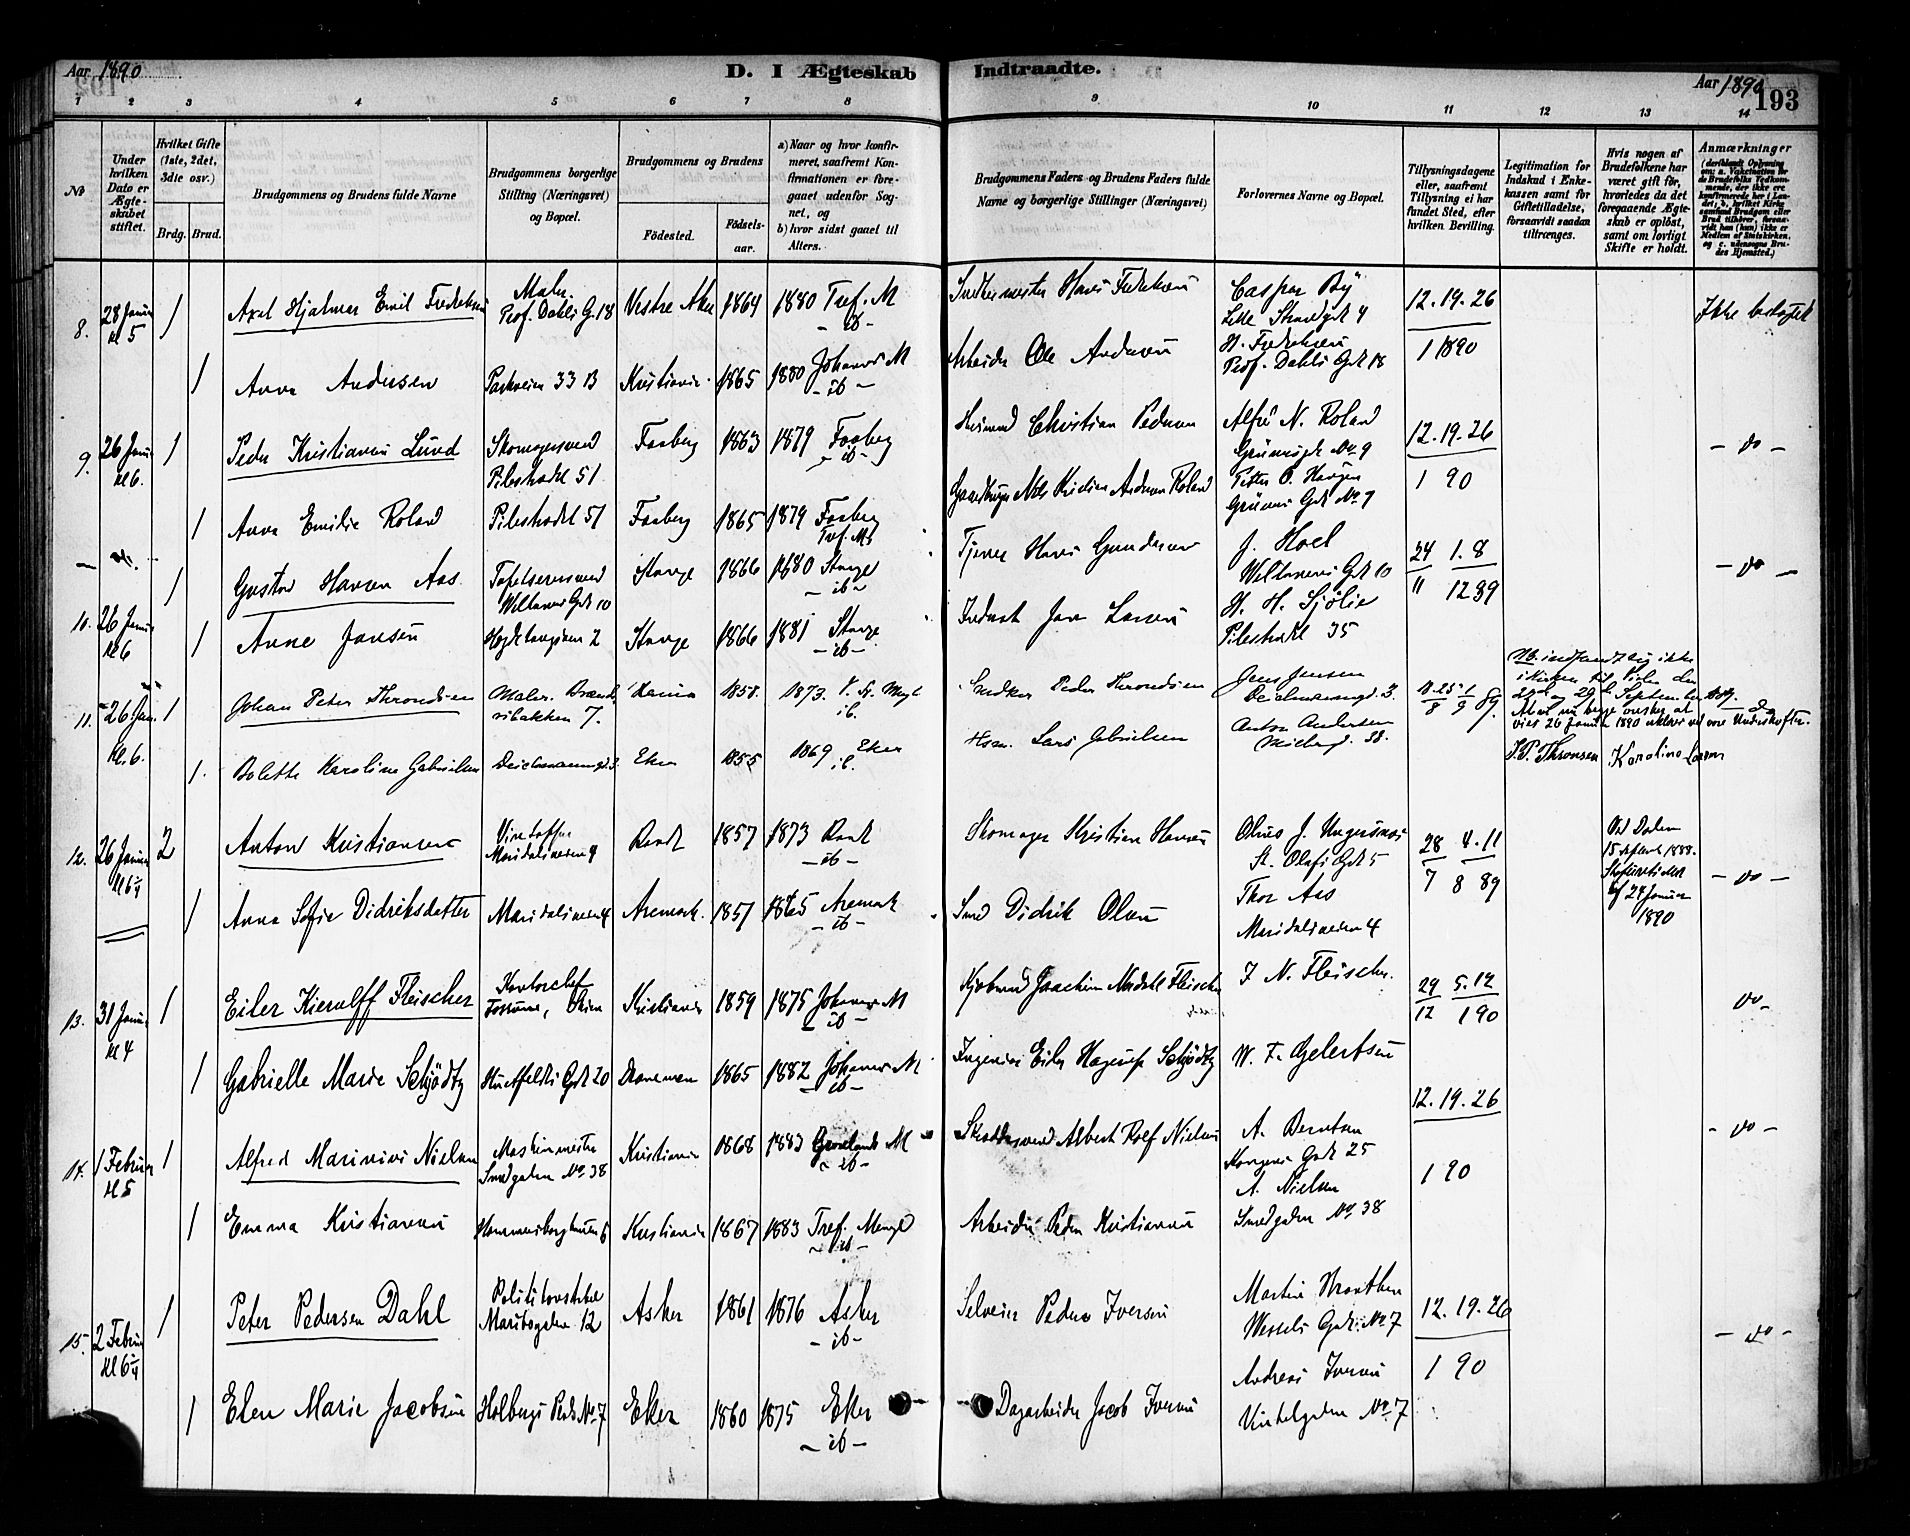 Aar 1890
D. I Ægteskab Indtraadte.
Aar 1890
193
1 2 3 4 5 6 7 8 9 10 11 12 13 14
No
Under hvilken Dato er Ægteskabet stiftet.
Hvilket Gifte (1ste, 2det, 3die osv.)
Brdg. Brud.
Brudgommens og Brudens fulde Navne
Brudgommens borgerlige Stilling (Næringsvei) og Bopæl.
Brudgommens og Brudens
Fødested.
Fødselsaar.
a) Naar og hvor konfirmeret, saafremt Konfirmationen er foregaaet udenfor Sognet, og
b) hvor sidst gaaet til Alters.
Brudgommens Faders og Brudens Faders fulde Navne og borgerlige Stillinger (Næringsvei)
Forlovernes Navne og Bopæl.
Tillysningsdagene eller, saafremt Tillysning ei har fundet Sted, efter hvilken Bevilling.
Legitimation for Indskud i Enkekassen samt for Giftetilladelse, forsaavidt saadan tiltrænges.
Hvis nogen af Brudefolkene har været gift før, hvorledes da det foregaaende Ægteskab er opløst, samt om lovligt Skifte er holdt.
Anmærkninger
8. 28 Januar Kl 5 1 Axel Hjalmar Emil Fredriksen Maler Prof. Dahls G. 18 Vestre Aker 1864 1880 Tref. M - ib - Hans Fredriksen Caspar By 4 12. 19. 26 Ikke beslægtet
H. Fredriksen Prof. Dahls Gd 18 1 1890
1 Anna Andersen Parkveien 33 B Kristiania 1865 1880 Johannes M - ib - Arbeider Ole Andersen
9. 26 Januar Kl 6. 1 Peder Kristiansen Lund Skomagersvend Pilestrædet 51 Faaberg 1863 1879 Faaberg - ib - Husmand Christian Pedersen Alfr. N. Roland No 9 12. 19. 26 - do -
1 Anna Emilie Roland Pilestrædet 51 Faaberg 1865 1879 Faaberg Tref. M Nils Kristian Andersen Roland Petter O. Haugen No 7 1 90
10. 26 Januar Kl 6 1 Gustav Hansen Aas Tapetserersvend Gd 10 Stange 1866 1880 Stange - ib - Tjener Hans Gundersen J. Hoel Gd 10 24 1. 8 - do -
11 12 89
1 Anne Jansen 2 Stange 1866 1881 Stange - ib - Inderst Jan Larsen H. H. Sjølie Pilestrædet 35
11. 26 Jan. Kl. 6. 1 Johan Peter Throndsen Maler. Brænneribakken 7. 1858. 1873. ib. Snedker Peder Throndsen Jens Jensen Deichmannsgd. 3. 18. 25 1 8 9 89.
NB. indfandt sig ikke i Kirken til Vielse den 22de og 29de September 1889. At vi nu begge ønsker at vies 26 Januar 1890 erklæres ved vore Underskrifter.
- do -
J. P. Thronsen Karoline Larsen
1. Bolette Karoline Gabrielsen Deichmannsgd. 3 Eker 1855 1869 Eker ib. Hsm. Lars Gabrielsen Anton Andersen 38.
12. 26 Januar Kl 6¼ 2 Anton Kristiansen Maridalsveien 4 1857 1873 - ib - Skomager Kristian Hansen Olaus J. St. Olafs Gd 5 28 4. 11
7 8 89
Ved Døden 15 Septemb 1888. Skifteattest af 24 Januar 1890
- do -
1 Anna Sofie Didriksdatter Maridalsveien 4 Aremark 1851 1865 Aremark - ib - Smed Didrik Olsen Thor Aas Maridalsveien 4
13. 31 Januar Kl 4 1 Eiler Kierulff Fleischer Kontorchef Fossum, Skien Kristiania 1859 1875 Johannes M - ib - Kjøbmand Joachim Fleischer J. N. Fleischer. 29 5. 12
12 1 90
do -
1 Gabrielle Marie Schjødtz Huitfeldts Gd 20 Drammen 1865 1882 Johannes M - ib - Ingeniør Eiler Hagerup Schjødtz W. F. Gelertsen
14. 1 Februar Kl 5 1 Alfred Marinius Nielsen Maskinmester Smedgaden No. 38 Kristiania 1868 1883 Grønlands M - ib - Skræddersvend Albert Rolf Nielsen A. Berntsen Kongens Gade 25 12. 19. 26 - do -
A. Nielsen Smedgaden No 38 1 90
1 Emma Kristiansen Hammersborgbakken 6 Kristiania 1867 1883 Tref. Menigh - ib - Arbeider Peder Kristiansen
15. 2 Februar Kl 6¼ 1 Peter Pedersen Dahl Politikonstabel Maribogaden 12 Asker 1861 1876 Asker - ib - Selveier Peder Iversen Martin Wessels Gade No 7 12. 19. 26 - do -
1 Elen Marie Jacobsen Holbergs Plads No 7 Eker 1860 1875 Eker - ib - Dagarbeider Jacob Iversen Andreas Iversen No 7 1 90